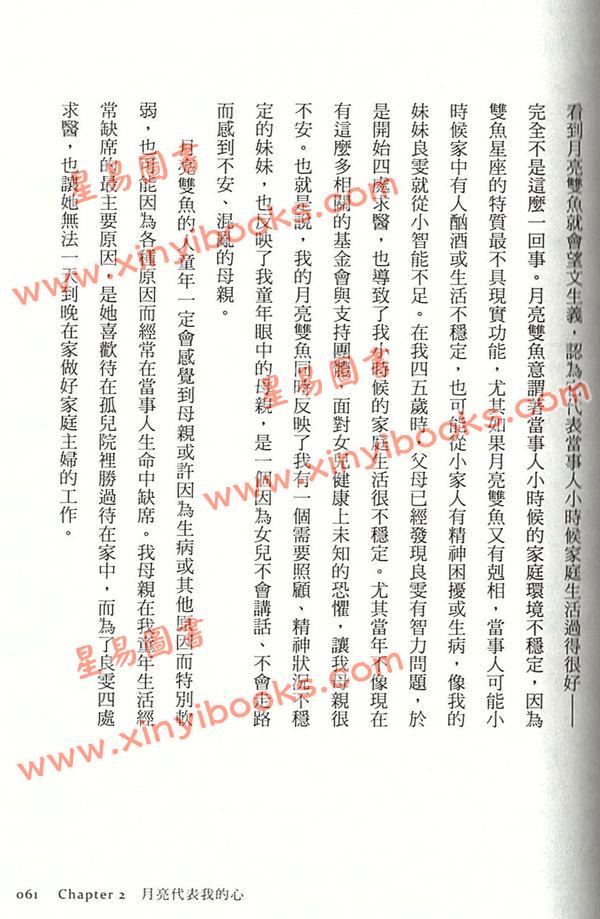 看到月亮雙魚就會望文生義，認為代表當事人小時候家庭生活過得很好——
完全不是這麼一回事。月亮雙魚意謂著當事人小時候的家庭環境不穩定，因為
雙魚星座的特質最不具現實功能，尤其如果月亮雙魚又有剋相，當事人可能小
時候家中有人酗酒或生活不穩定，也可能從小家人有精神困擾或生病，像我的
妹妹良雯就從小智能不足。在我四五歲時，父母已經發現良雯有智力問題，於
是開始四處求醫，也導致了我小時候的家庭生活很不穩定。尤其當年不像現在
有這麼多相關的基金會與支持團體，面對女兒健康上未知的恐懼，讓我母親很
不安。也就是說，我的月亮雙魚同時反映了我有一個需要照顧、精神狀況不穩
定的妹妹，也反映了我童年眼中的母親，是一個因為女兒不會講話、不會走路
而感到不安、混亂的母親。
月亮雙魚的人童年一定會感覺到母親或許因為生病或其他原因而特別軟
弱，也可能因為各種原因而經常在當事人生命中缺席。我母親在我童年生活經
常缺席的最主要原因，是她喜歡待在孤兒院裡勝過待在家中，而為了良雯四處
求醫，也讓她無法一天到晚在家做好家庭主婦的工作。
061 Chapter 2 月亮代表我的心
星易圖書
www.xinyibooks.com
星易圖書
www.xinyibooks.com
星易圖書
www.xinyibooks.com